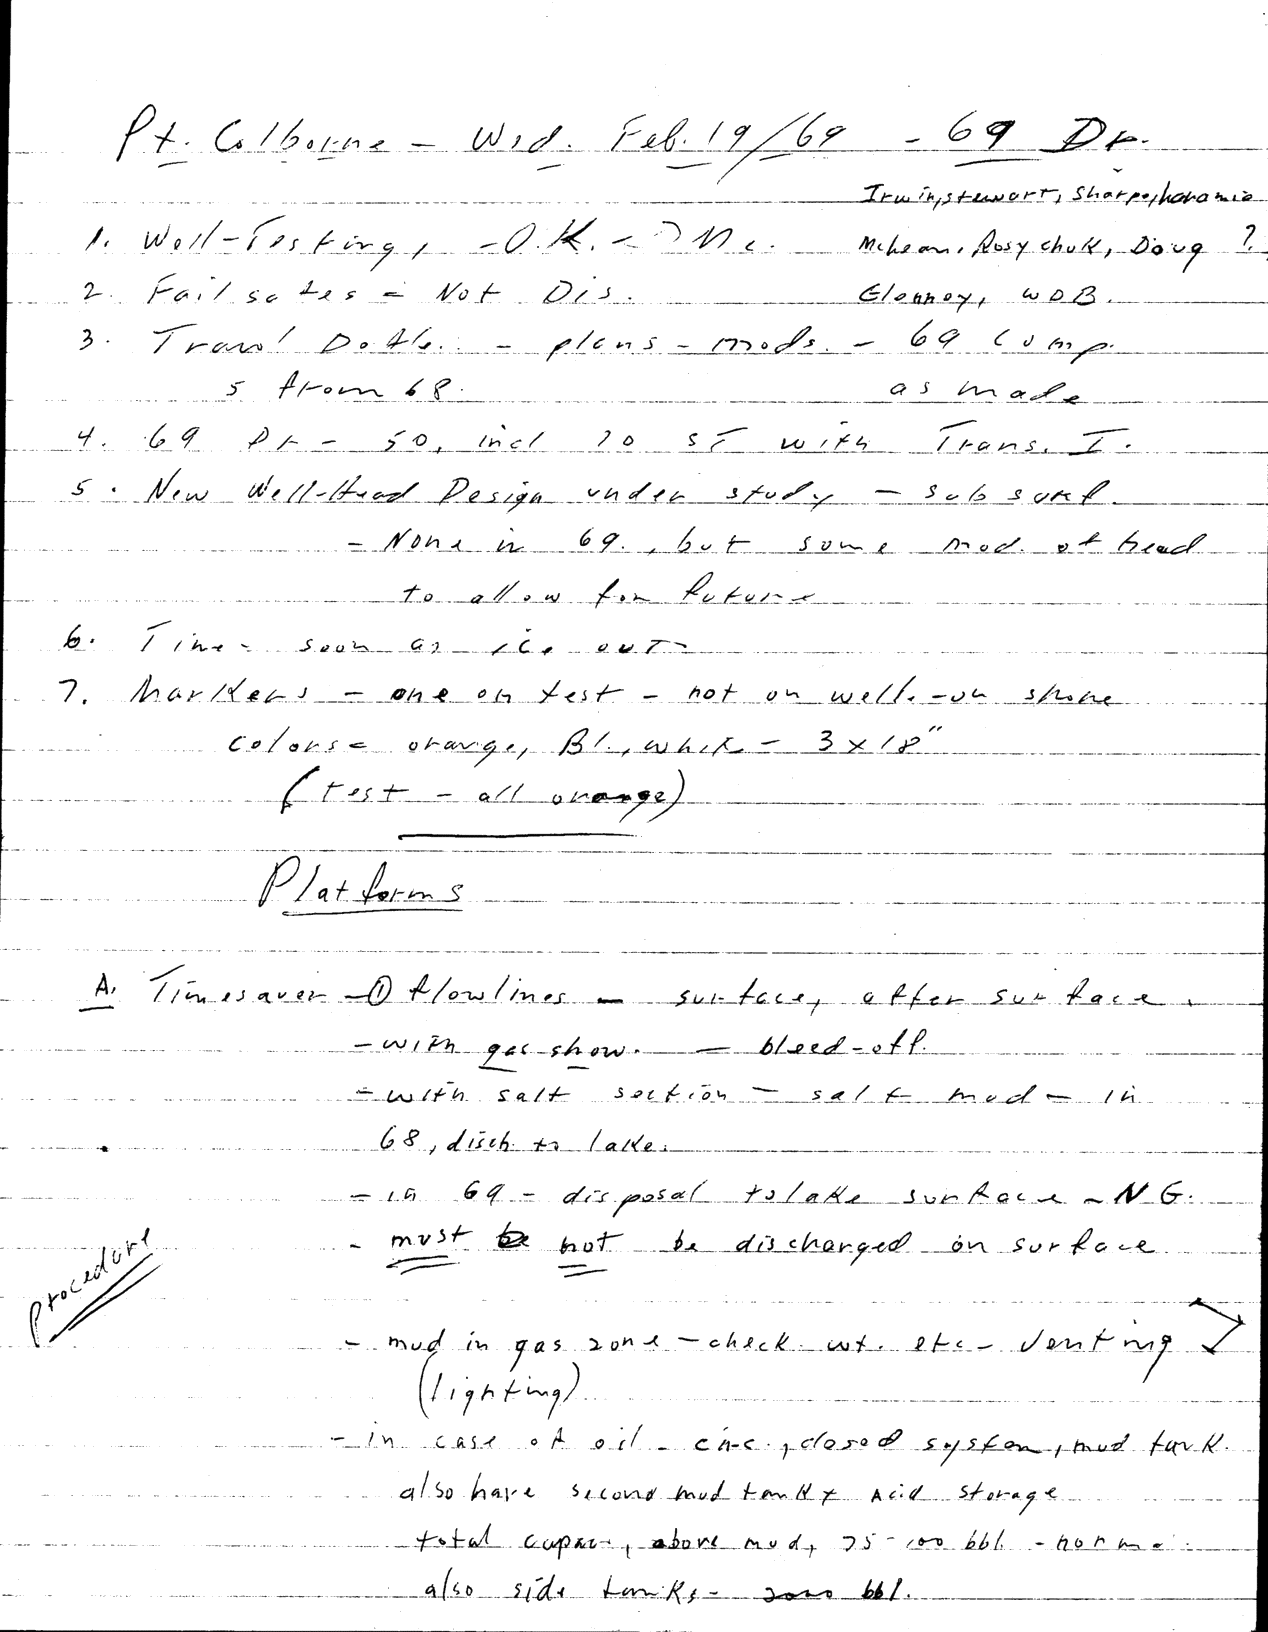 Pt. Colborne - Wed. Feb. 19/69 - 69 Dr.
Irwin, Stewart, Sharpe,
1. Well-Testing, - O.K. - ? Mc.
McLean, Rosychuk, Doug ?
2. Fail safes = Not Dis.
Glenney, WDB.
3. Trawl Defle. - plans - mods. - 69 Comp.
5 from 68. as made
4. 69 Dr - 50, incl 20 ST with Trans. I.
5. New Well-Head Design under study - subsurf.
- None in 69., but some mod. of head
to allow for future
6. Time - soon as ice out
7. Markers - one on test - not on well. - on shore
Colors = orange, Bl., white - 3 x 18"
(test - all orange)
Platforms
A. Timesaver - ① flowlines - surface, after surface.
- with gas show. - bleed-off.
- with salt section - salt mud - in
68, disch. to lake.
- in 69 - disposal to lake surface - N G.
- must be not be discharged on surface
procedure
- mud in gas zone - check wt. etc - venting
(lighting)
- in case of oil - circ., closed system, mud tank.
also have second mud tank + Acid storage
total capac., above mud, 75-100 bbl. -
also side tanks - bbl.